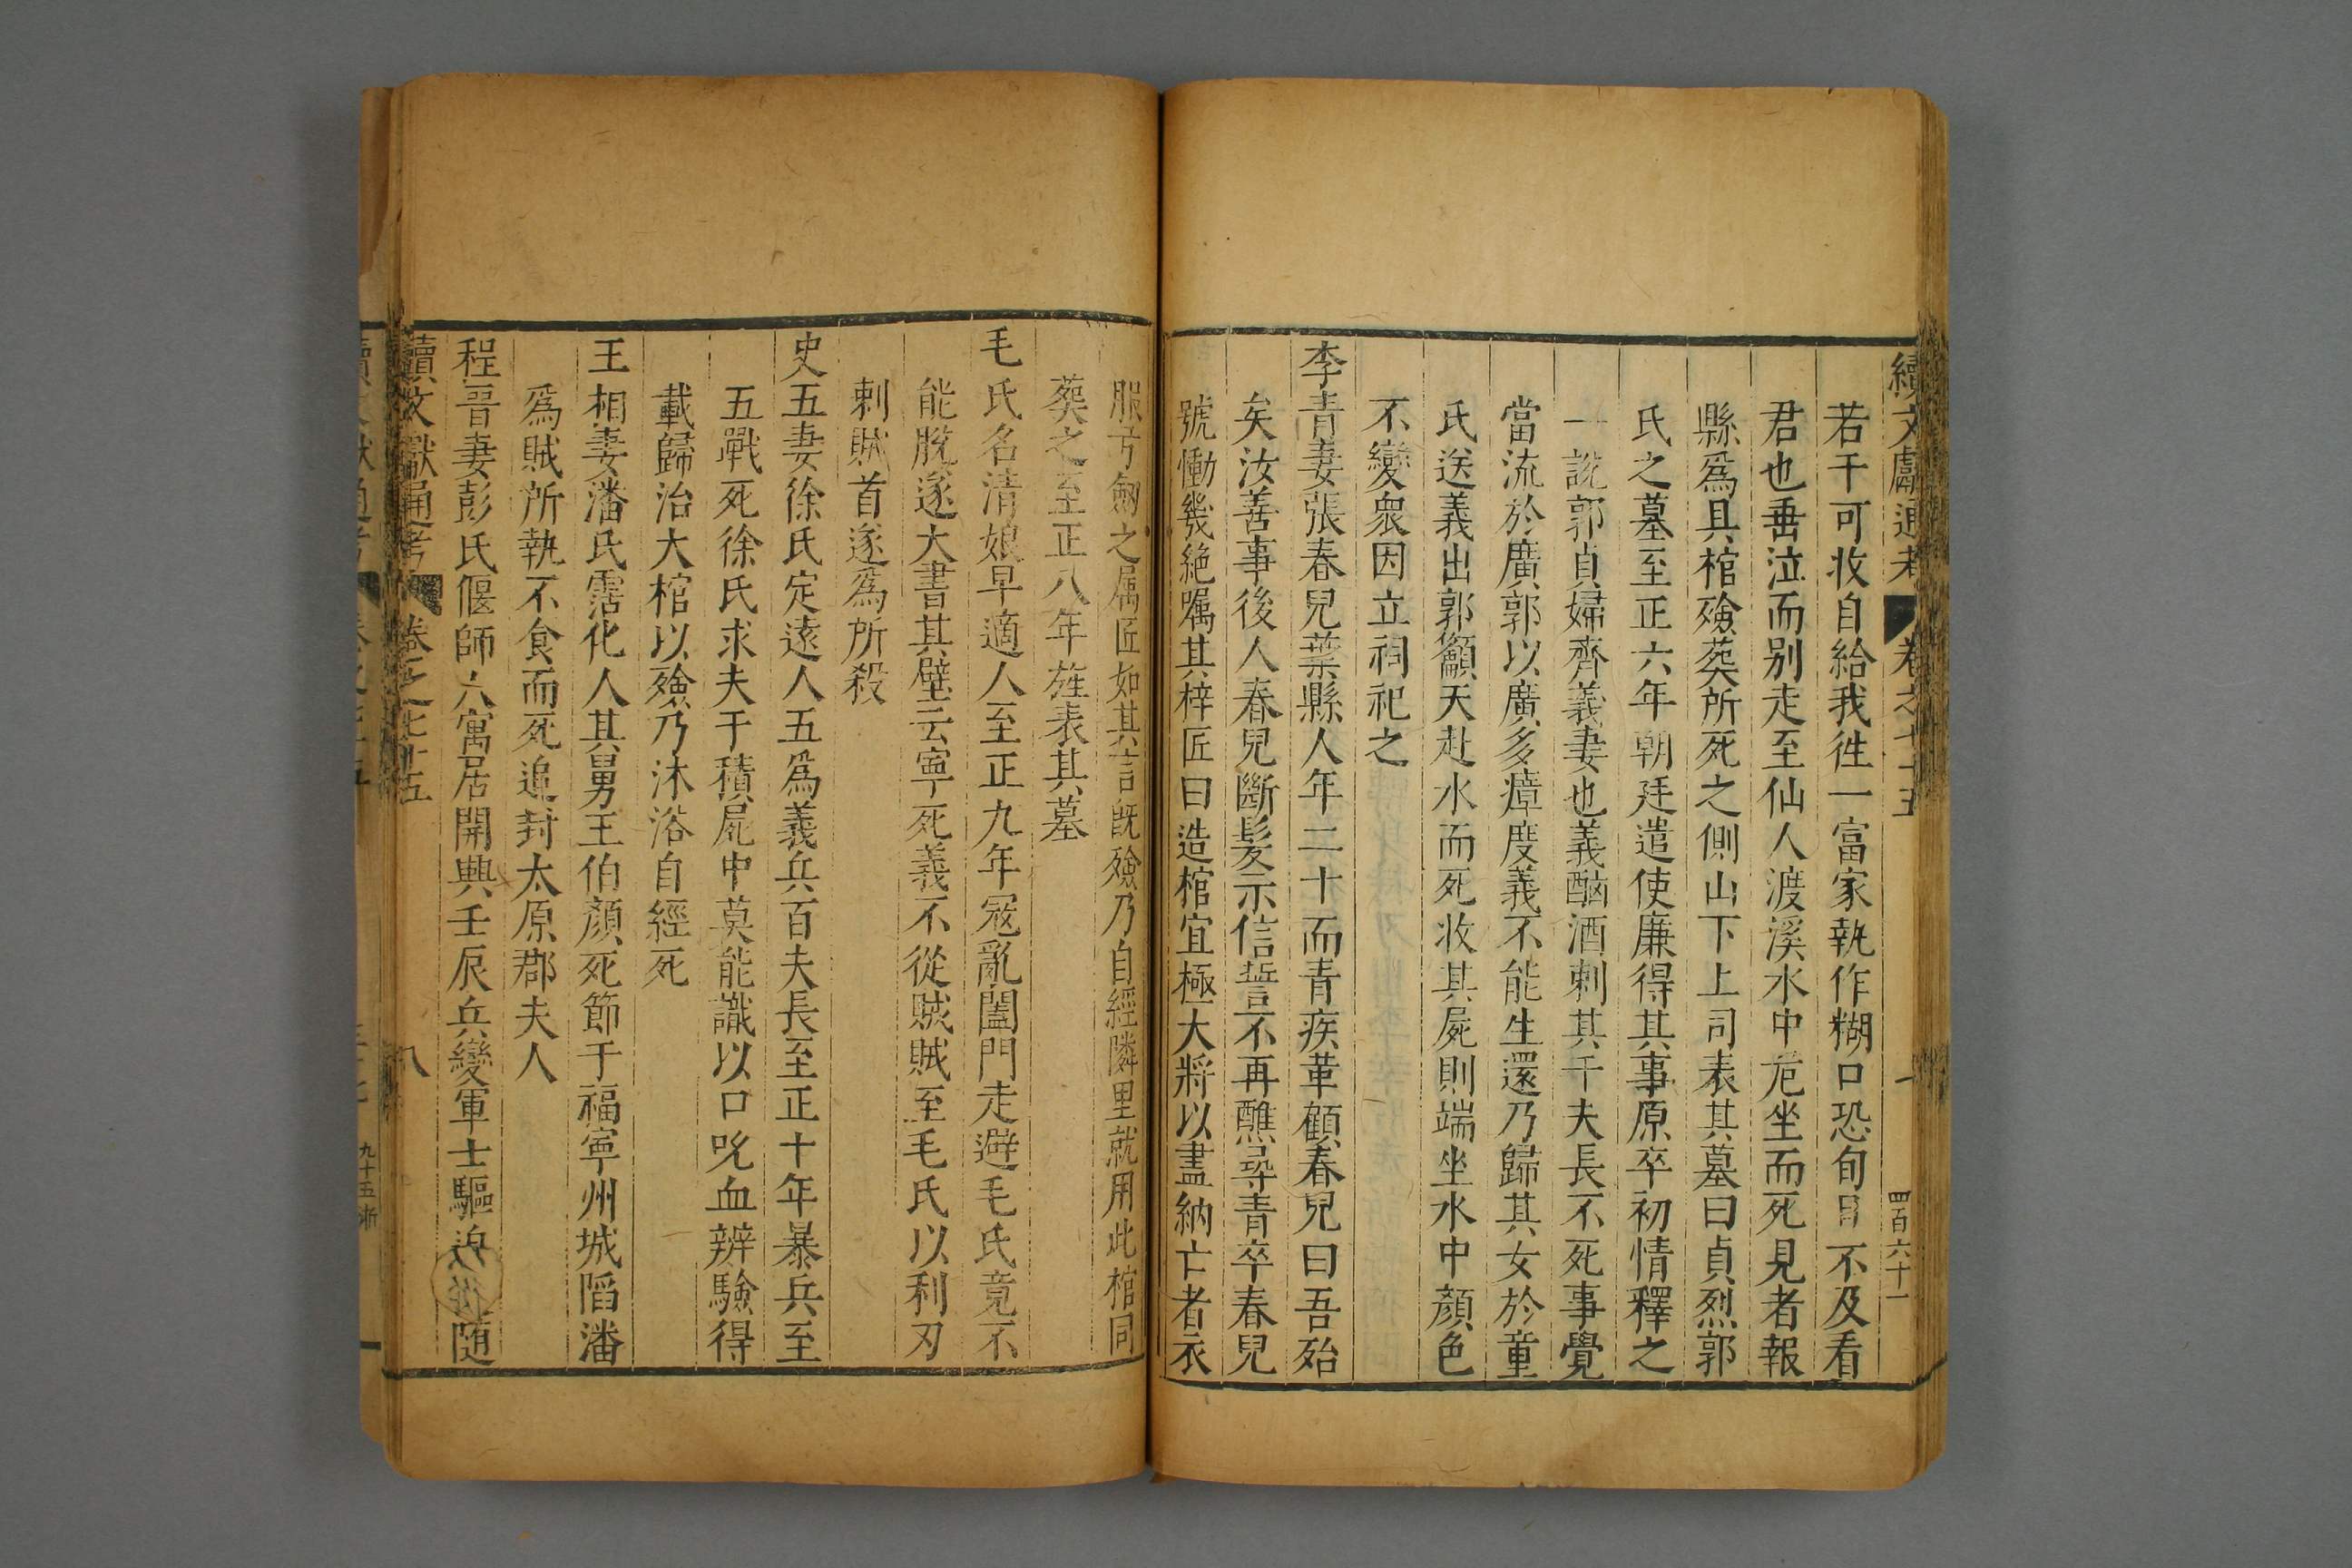 續文獻通考 卷之七十五 四百六十一
若干可收自給我徃一富家執作糊口恐旬日不及看
君也垂泣而别走至仙人渡溪水中危坐而死見者報
縣爲具棺殮葬所死之側山下上司表其墓曰貞烈郭
氏之墓至正六年朝廷遣使廉得其事原卒初情釋之
一說郭貞婦齊義妻也義酗酒刺其千夫長不死事覺
當流於廣郭以廣多瘴度義不能生還乃歸其女於童
氏送義出郭籲天赴水而死收其屍則端坐水中顏色
不變衆因立祠祀之
李青妻張春兒葉縣人年二十而青疾革顧春兒曰吾殆
矣汝善事後人春兒斷髮示信誓不再醮尋青卒春兒
號慟幾絶嘱其梓匠曰造棺宜極大將以盡納亡者衣
服弓劒之属匠如其言旣殮乃自經隣里就用此棺同
葬之至正八年旌表其墓
毛氏名清娘早適人至正九年冦亂闔門走避毛氏竟不
能脫遂大書其壁云寧死義不從賊賊至毛氏以利刃
刺賊首遂爲所殺
史五妻徐氏定遠人五爲義兵百夫長至正十年暴兵至
五戰死徐氏求夫于積屍中莫能識以口吮血辨驗得
載歸治大棺以殮乃沐浴自經死
王相妻潘氏霑化人其舅王伯顏死節于福寧州城陷潘
爲賊所執不食而死追封太原郡夫人
程晉妻彭氏偃師人寓居開興壬辰兵變軍士驅迫 隨
續文獻通考 卷之七十五 八
九十五